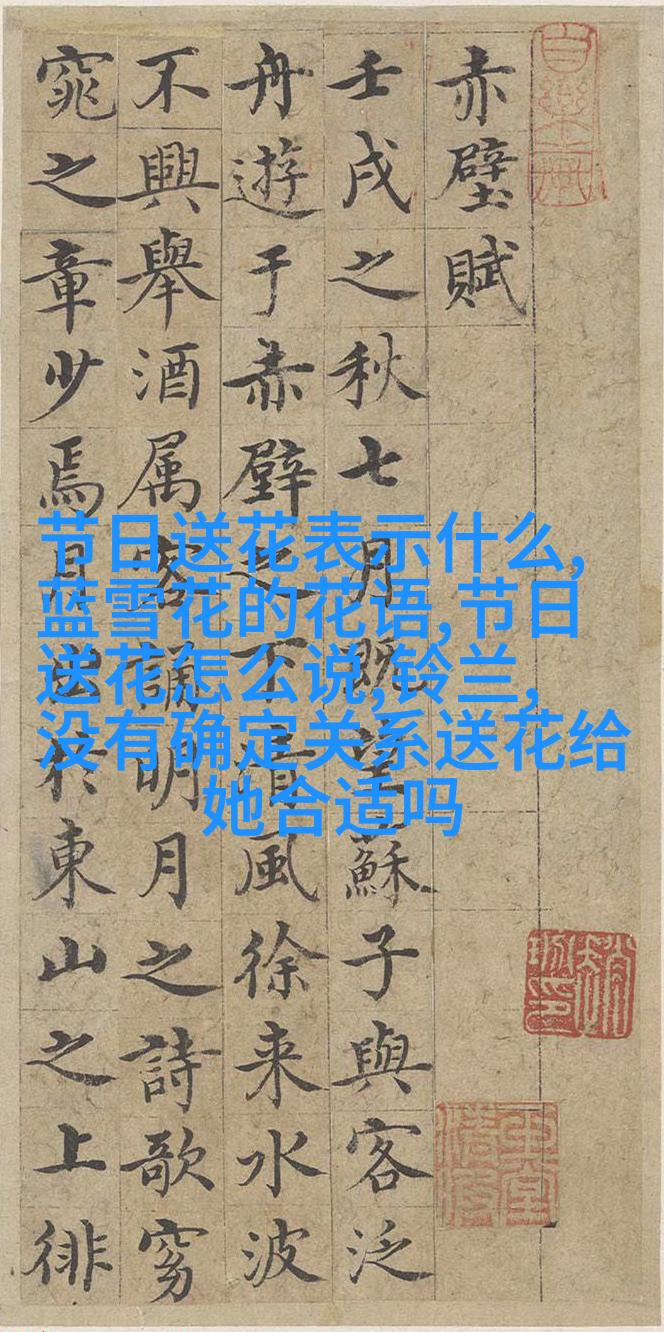 赤壁賦
壬戌之秋七月既望蘇子與客泛
舟遊于赤壁之下清風徐来水波
不興舉酒属客誦明月之詩歌窈
窕之章少焉月出於東山之上徘
节日送花表示什么,
蓝雪花的花语,节日
送花怎么说,铃兰,
没有确定关系送花给
她合适吗